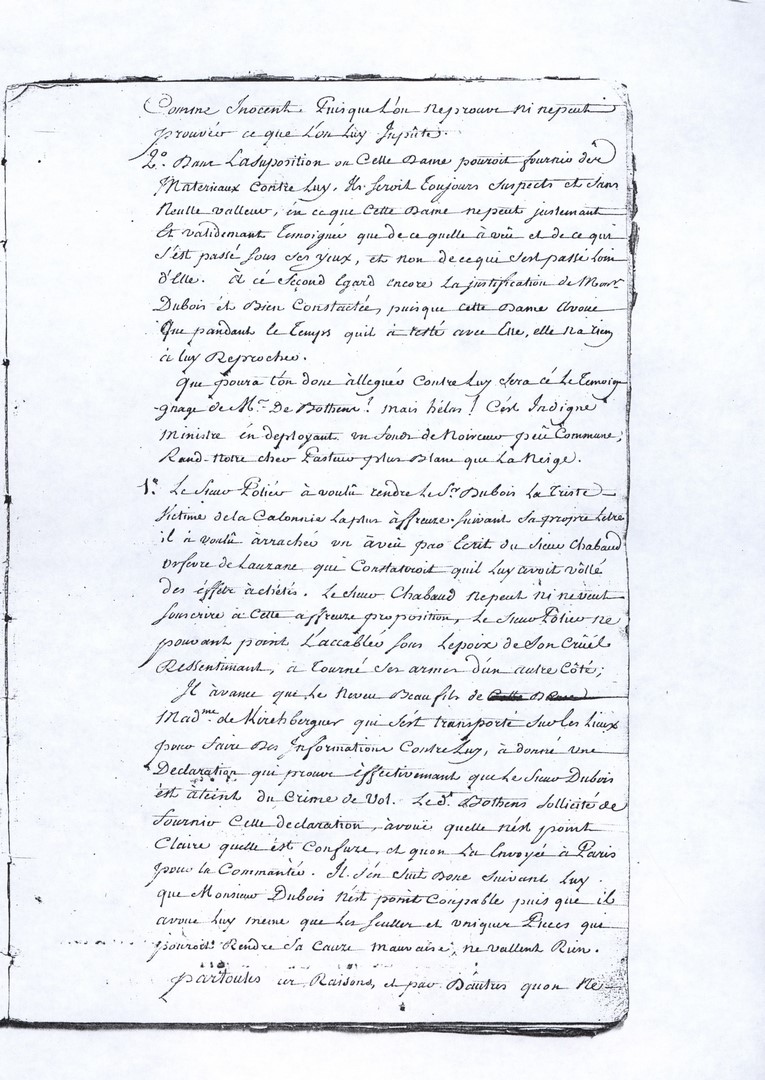 Comme Inocent. Puisque L'on neprouve ni nepeut
prouvér ce que L'on Luy Inpute.
2° Dans Lasuposition ou Cette Dame pouroit fournir des
Materiaux Contre Luy. Ils seroit toujours suspects et sans
Neulle valleur, en ce que Cette Dame nepeut justemant
Et validemant Temoignér que de ce quelle à veü et de ce qui
s'est passé sous ses yeux, et non de ce qui s'est passé Loin
d'Elle. À cé second Egard encore La justification de Monsr
Dubois ét Bien Constactée, puisque cette Dame Avoue
Que pandant le Temps quil à resté avec Elle, elle na rien
à luy Reprocher.
Que poura t'on donc àlleguér Contre Luy sera cé Le Temoig
-gnage de Mr. De Bottens! mais hélas! C'ést Indigne
Ministre én deployant un fonds de Noirceur peü Commune,
Rand-Notre cher Pasteur plus Blanc que La Neige.
1° Le Sieur Poliér à voulû rendre Le Sr. Dubois La Triste
Victime dela Calonnie Laplus àffreuze. suivant Sa propre Letre
il à voulû àrracher un àveü par Ecrit du Sieur Chabaud
orfevre de Lauzane qui Constateroit quil Luy avoit vollé
des éfféts àchétés. Le Sieur Chabaud ne peut ni ne veut
souscrire à Cette affreuze proposition, Le Sieur Polier ne
pouvant point L'accablér sous Lepoix de Son Crüél
Ressentimant, à Tourné ses armes d'un autre Côté;
Il àvance que Le Neveu Beau fils de
Madme de Kirchberguer qui s'ést transporté sur les Lieux
pour faire Des Informations Contre Luy, à donné une
Declaration qui prouve Effectivemant que Le Sieur Dubois
ést àteint du Crime de Vol. Le Sr. Bottens sollicité de
fournir Cette declaration, àvoüe quelle nést point
Claire quelle ést Confuze, et quon La Envoyée à Paris
pour la Commantér. Il s'én suit Donc suivant Luy
que Monsieur Dubois Nést point Coupable puis que il
avoue Luy meme que Les seulles et uniques Pieces qui
pouroit Rendre Sa Cauze mauvaise, ne vallent Rien.
partoutes ces Raisons, et par Dàutres quon Ne-